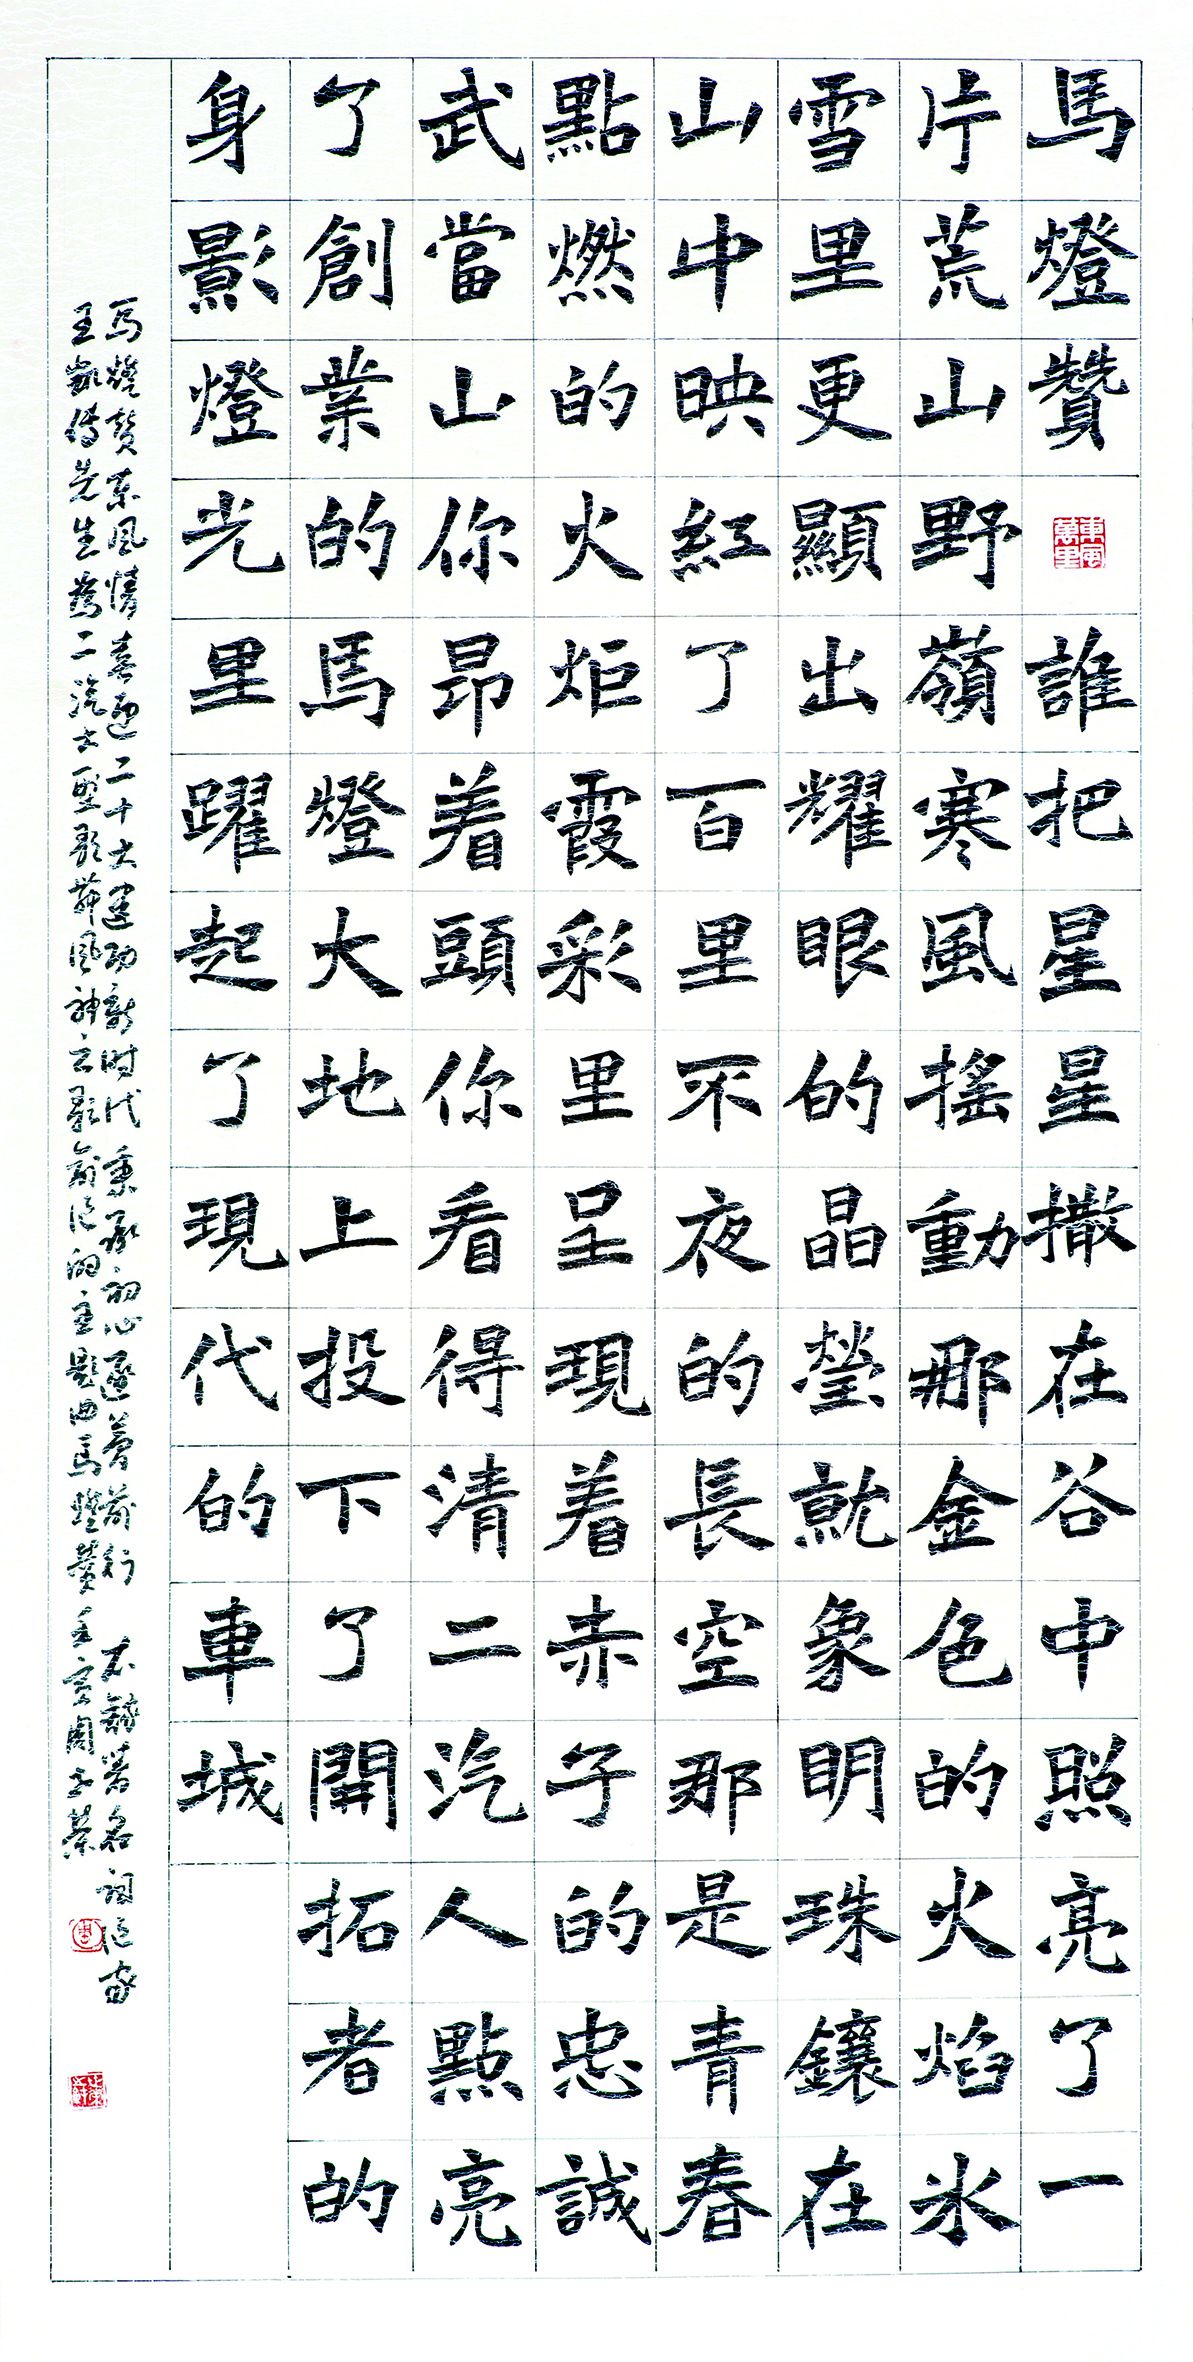 馬燈贊 東風萬里 誰把星星撒在谷中照亮了一
片荒山野嶺寒風搖動那金色的火焰氷
雪里更顯出耀眼的晶瑩就象明珠鑲在
山中映紅了百里不夜的長空那是青春
點燃的火炬霞彩里呈現着赤子的忠誠
武當山你昂着頭你看得清二汽人點亮
了創業的馬燈大地上投下了開拓者的
身影燈光里躍起了現代的車城
馬燈贊东風情喜迎二十大建功新时代秉承初心逐夢前行 著名词作家
王凱傳先生為二汽大型歌舞風神之歌创作的主题曲馬燈贊